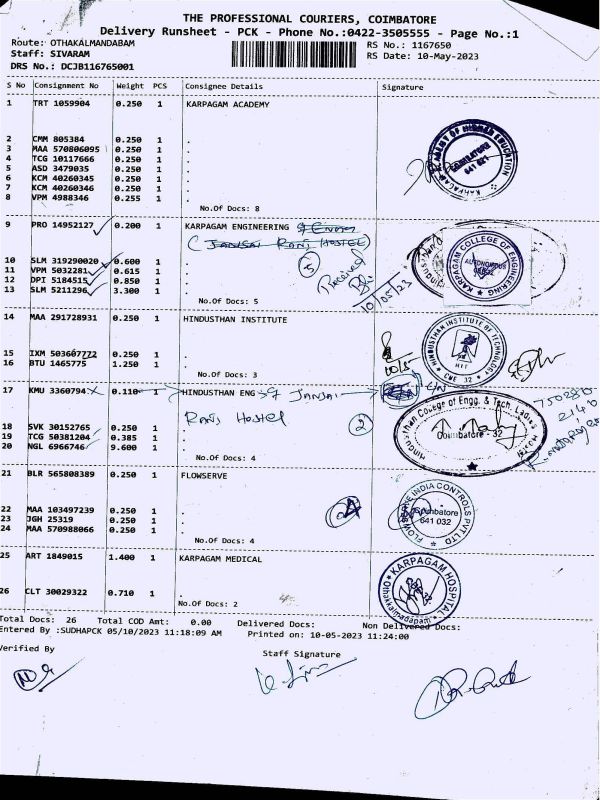 THE PROFESSIONAL COURIERS, COIMBATORE
Delivery Runsheet - PCK - Phone No.:0422-3505555 - Page No.:1
Route: OTHAKALMANDABAM
RS No.: 1167650
Staff: SIVARAM
RS Date: 10-May-2023
DRS No.: DCJB116765001
S No Consignment No Weight PCS Consignee Details Signature
1 TRT 1059904 0.250 1 KARPAGAM ACADEMY
2 CMM 805384 0.250 1 .
3 MAA 570806095 0.250 1 .
4 TCG 10117666 0.250 1 .
5 ASD 3479035 0.250 1 .
6 KCM 40260345 0.250 1 .
7 KCM 40260346 0.250 1 .
8 VPM 4988346 0.255 1 .
No.Of Docs: 8
KARPAGAM ACADEMY OF HIGHER EDUCATION
COIMBATORE
641 021
9 PRO 14952127 0.200 1 KARPAGAM ENGINEERING
(JANSAI RANI HOSTEL)
10 SLM 319290020 0.600 1 .
11 VPM 5032281 0.615 1 .
12 DPI 5184515 0.850 1 .
13 SLM 5211296 3.300 1 .
No.Of Docs: 5
5
Received
10/05/23
KARPAGAM COLLEGE OF ENGINEERING
AUTONOMOUS
14 MAA 291728931 0.250 1 HINDUSTHAN INSTITUTE
15 IXM 503607772 0.250 1 .
16 BTU 1465775 1.250 1 .
No.Of Docs: 3
HINDUSTHAN INSTITUTE OF TECHNOLOGY
HIT
CBE 32
17 KMU 3360794 0.110 1 HINDUSTHAN ENG JANSAI
Rani Hostel
18 SVK 30152765 0.250 1 .
19 TCG 50381204 0.385 1 .
20 NGL 6966746 9.600 1 .
No.Of Docs: 4
2
Hindusthan College of Engg. & Tech. Ladies Hostel
Coimbatore - 32
21 BLR 565808389 0.250 1 FLOWSERVE
22 MAA 103497239 0.250 1 .
23 JGH 25319 0.250 1 .
24 MAA 570988066 0.250 1 .
No.Of Docs: 4
FLOWSERVE INDIA CONTROLS PVT LTD
Coimbatore
641 032
25 ART 1849015 1.400 1 KARPAGAM MEDICAL
26 CLT 30029322 0.710 1 .
No.Of Docs: 2
KARPAGAM HOSPITAL
Othakkalmandapam
Total Docs: 26 Total COD Amt: 0.00 Delivered Docs: Non Delivered Docs:
Entered By :SUDHAPCK 05/10/2023 11:18:09 AM Printed on: 10-05-2023 11:24:00
Verified By
Staff Signature